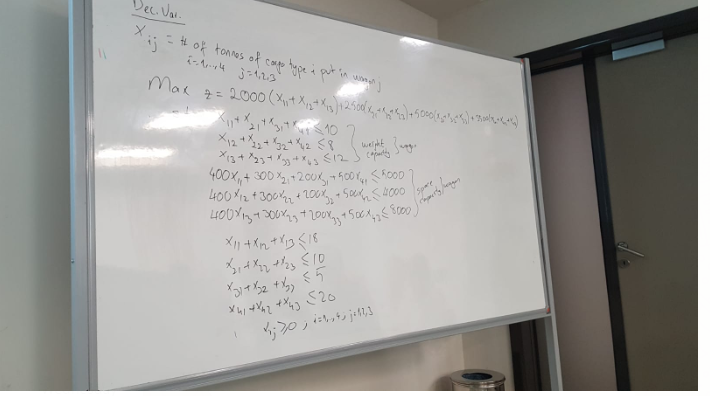 Dec. Var.
Xij = # of tonnes of cargo type i put in wagon j
i=1,..,4 j=1,2,3
Max z = 2000(X11+X12+X13)+2500(X21+X22+X23)+5000(X31+X32+X33)+3500(X41+X42+X43)
X11+X21+X31+X41≤10
X12+X22+X32+X42≤8
X13+X23+X33+X43≤12
weight
capacity
400X11+300X21+200X31+500X41≤5000
400X12+300X22+200X32+500X42≤4000
400X13+300X23+200X33+500X43≤8000
space
capacity
X11+X12+X13≤18
X21+X22+X23≤10
X31+X32+X33≤5
X41+X42+X43≤20
Xij≥0, i=1,..,4, j=1,2,3